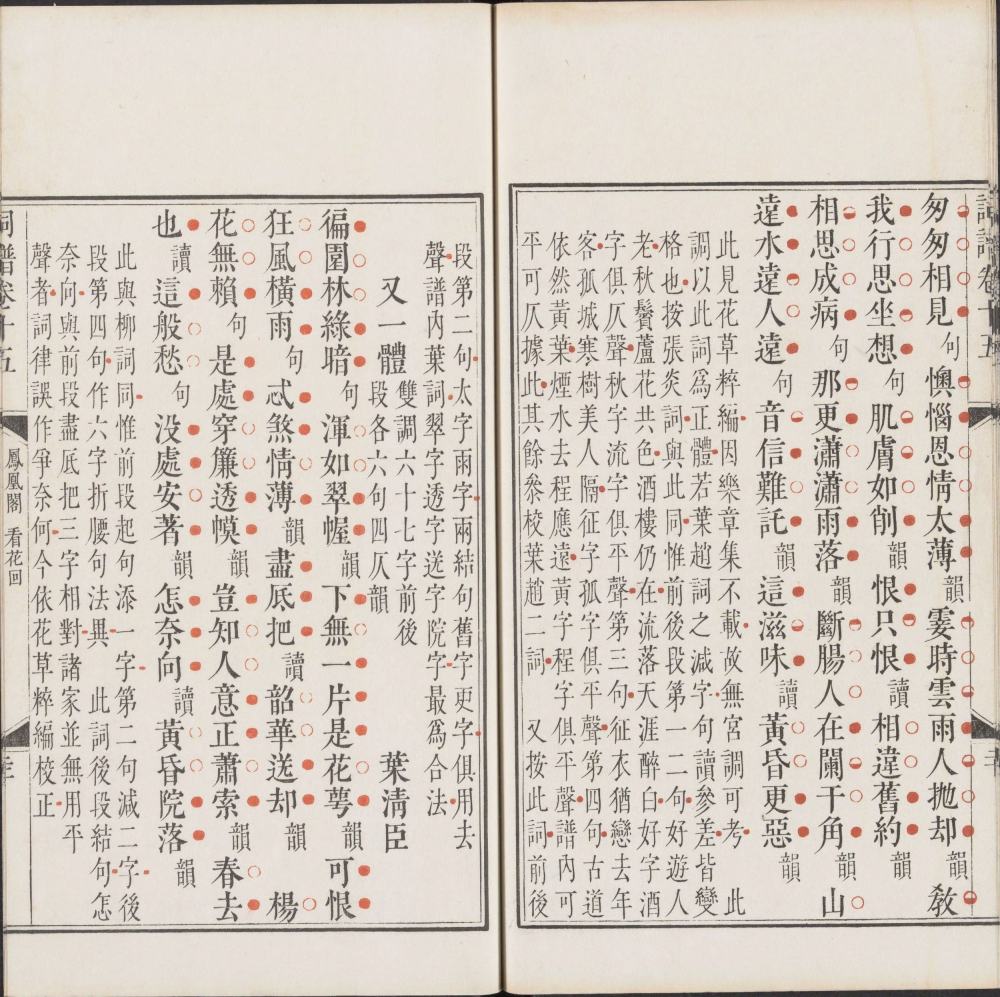 詞譜卷十五
匆匆相見句懊惱恩情太薄韻霎時雲雨人拋却韻教
我行思坐想句肌膚如削韻恨只恨讀相違舊約韻
相思成病句那更瀟瀟雨落韻斷腸人在闌干角韻山
遠水遠人遠句音信難託韻這滋味讀黃昏更惡韻
此見花草粹編因樂章集不載故無宮調可考 此
調以此詞爲正體若葉趙詞之減字句讀參差皆變
格也按張炎詞與此同惟前後段第一二句好遊人
老秋鬢蘆花共色酒樓仍在流落天涯醉白好字酒
字俱仄聲秋字流字俱平聲第三句征衣猶戀去年
客孤城寒樹美人隔征字孤字俱平聲第四句古道
依然黃葉煙水去程應遠黃字程字俱平聲譜內可
平可仄據此其餘叅校葉趙二詞 又按此詞前後
段第二句太字雨字兩結句舊字更字俱用去
聲譜內葉詞翠字透字送字院字最爲合法
又一體雙調六十七字前後段各六句四仄韻 葉清臣
徧園林綠暗句渾如翠幄韻下無一片是花萼韻可恨
狂風橫雨句忒煞情薄韻盡底把讀韶華送却韻 楊
花無賴句是處穿簾透幙韻豈知人意正蕭索韻春去
也讀這般愁句没處安著韻怎奈向讀黃昏院落韻
此與柳詞同惟前段起句添一字第二句減二字後
段第四句作六字折腰句法異 此詞後段結句怎
奈向與前段盡底把三字相對諸家並無用平
聲者詞律誤作爭奈何今依花草粹編校正
詞譜卷十五
鳳凰閣 看花回